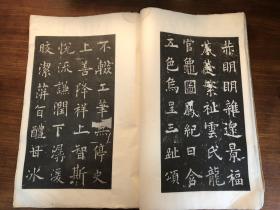 赫明明雜遝景福
葳蕤繁祉雲氏龍
官龜圖鳳紀日含
五色烏呈三趾頌
不輟工筆無停史
上善降祥上智斯
悅流謙潤下潺湲
皎潔蓱旨醴甘冰